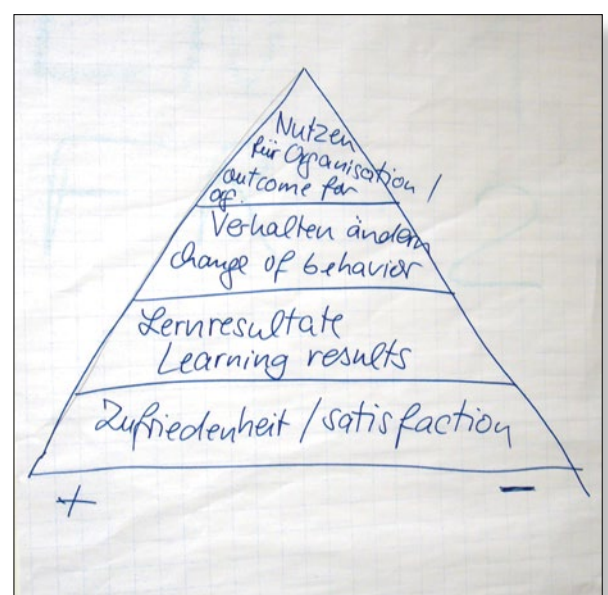 Nutzen
für Organisation /
outcome for
og.
Verhalten ändern
change of behavior
Lernresultate
Learning results
Zufriedenheit / satisfaction
+ −